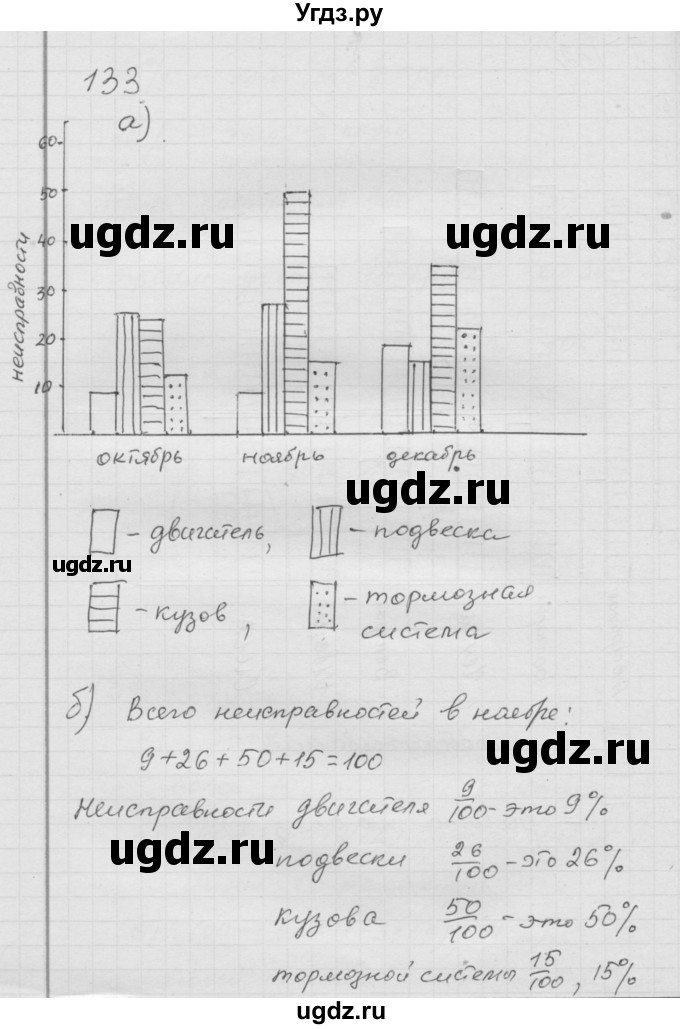 Угдз.ру
133
а)
60
ugdz.ru
50
ugdz.ru
40
неисправности
30
20
10
октябрь ноябрь декабрь
ugdz.ru
- двигатель, - подвеска
ugdz.ru
- кузов, - тормозная
система
б) Всего неисправностей в наебре:
ugdz.ru
9+26+50+15=100
Неисправности двигателя 9/100 - это 9%
ugdz.ru
подвески 26/100 - это 26%
кузова 50/100 - это 50%
тормозной системы 15/100, 15%
ugdz.ru